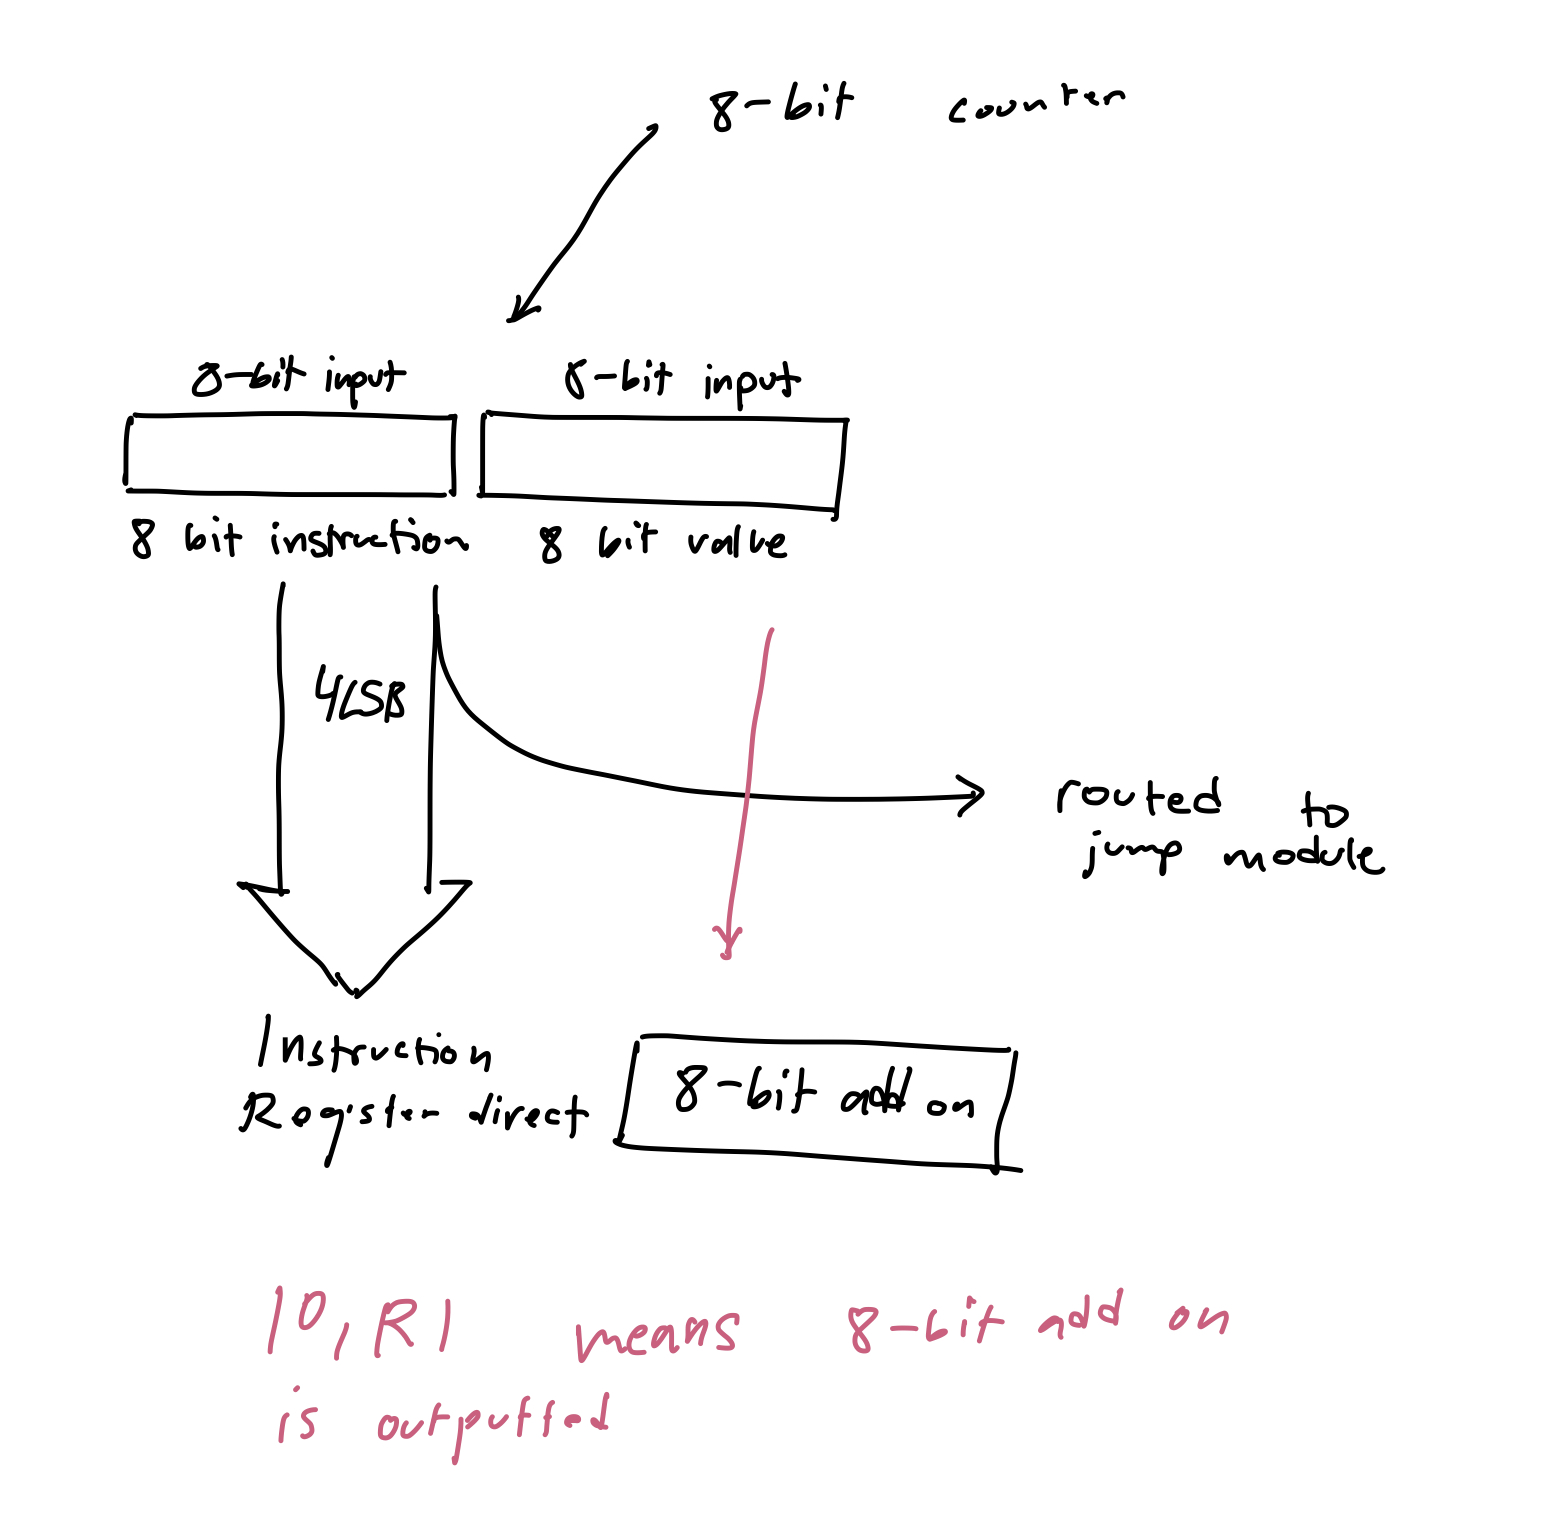 8-bit counter
8-bit input 8-bit input
8 bit instruction 8 bit value
4LSB
routed to
jump module
Instruction
Register direct
8-bit add on
10, R1 means 8-bit add on
is outputted